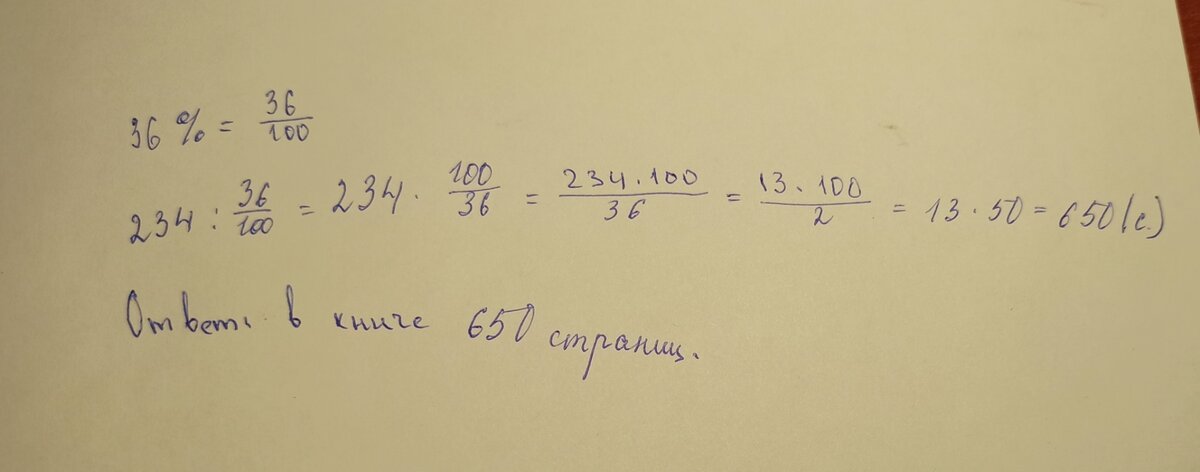 36 % = 36/100
234 : 36/100 = 234 · 100/36 = 234 · 100/36 = 13 · 100/2 = 13 · 50 = 650 (с.)
Ответ: в книге 650 страниц.